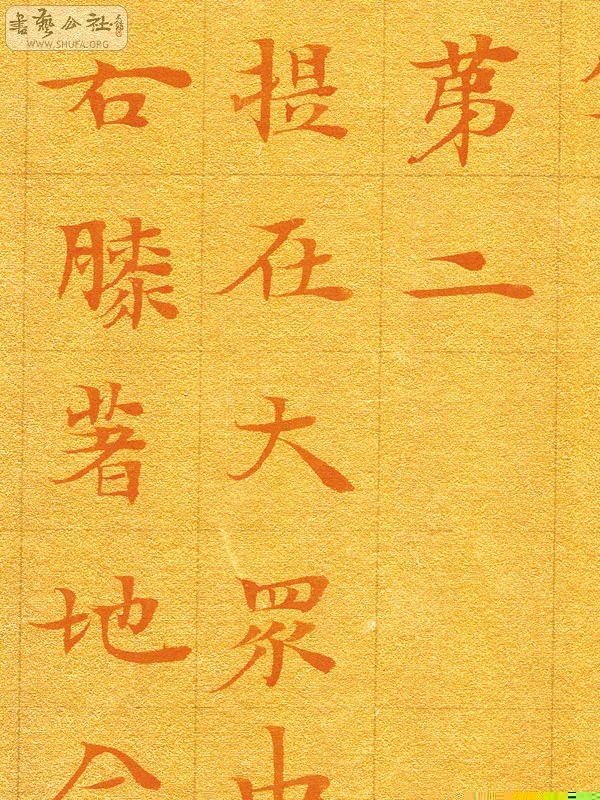 第二
提在大眾中
右膝著地合
書藝公社
WWW.SHUFA.ORG